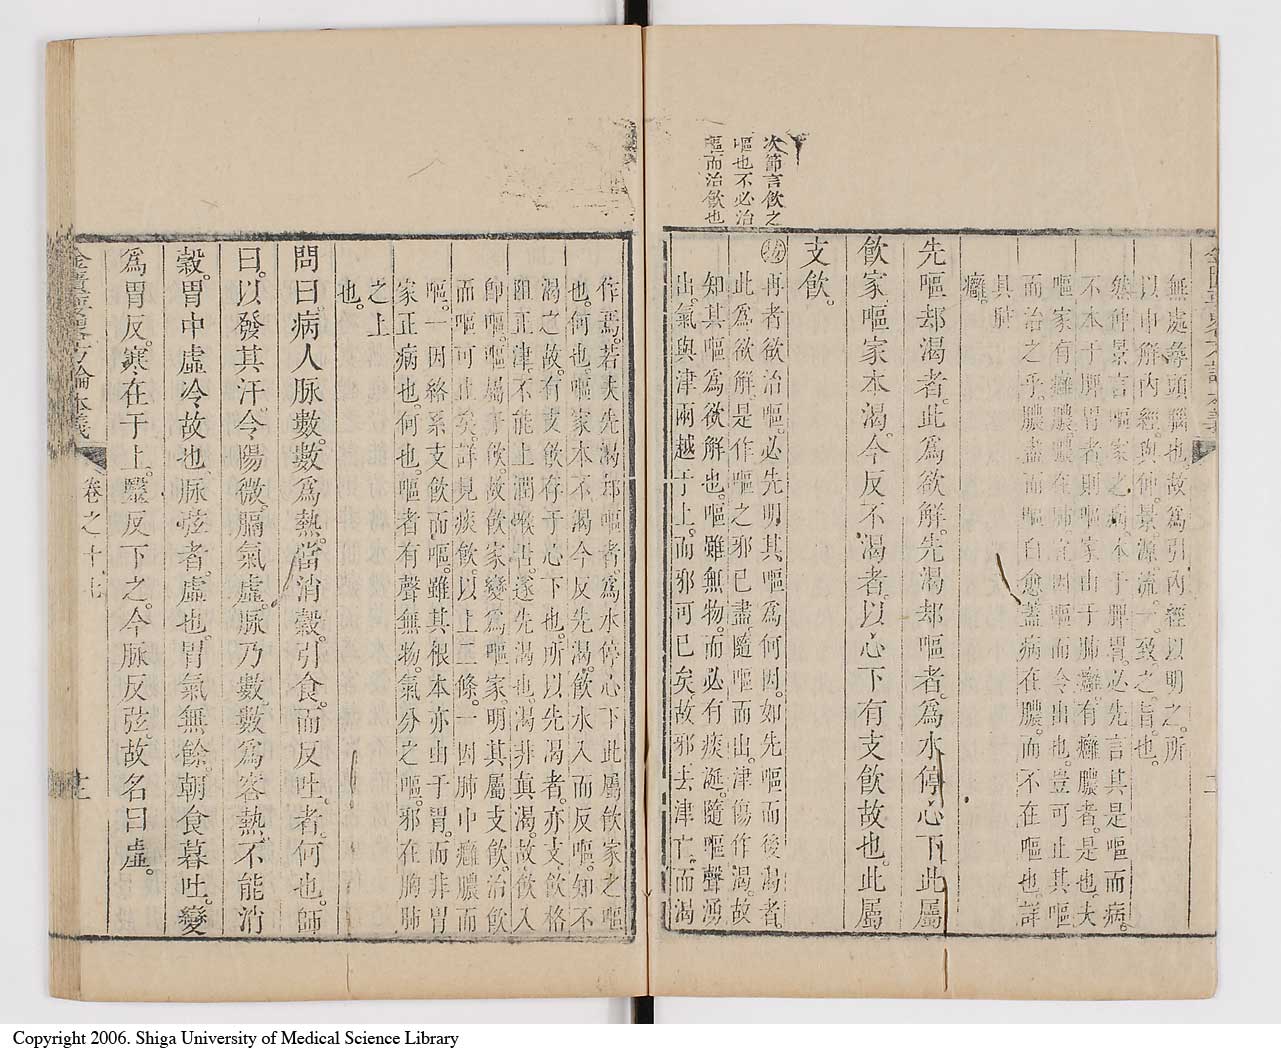 無處尋頭腦也。故爲引內經以明之。所
以申解內經與仲景源流一致之旨也。
然仲景言嘔家之病。本于脾胃。必先言其是嘔而病。
不本于脾胃者。則嘔家由于肺癰。有癰膿者。是也。夫
嘔家有癰膿。膿在肺。宜因嘔而令出也。豈可止其嘔
而治之乎。膿盡而嘔自愈。蓋病在膿。而不在嘔也。詳
其肺
癰。
先嘔却渴者。此爲欲解。先渴却嘔者。爲水停心下。此屬
飲家。嘔家本渴。今反不渴者。以心下有支飲故也。此屬
支飲。
次節言飲之
嘔也不必治
嘔而治飲也
再者欲治嘔。必先明其嘔爲何因。如先嘔而後渴者。
此爲欲解。是作嘔之邪已盡。隨嘔而出。津傷作渴。故
知其嘔爲欲解也。嘔雖無物。而必有痰涎。隨嘔聲湧
出。氣與津兩越于上。而邪可已矣。故邪去津亡。而渴
作焉。若夫先渴却嘔者。爲水停心下。此屬飲家之嘔
也。何也。嘔家本不渴。今反先渴。飲水入而反嘔。知不
渴之故。有支飲存于心下也。所以先渴者。亦支飲格
阻正津。不能上潤喉舌。遂先渴也。渴非真渴。故飲入
卽嘔。嘔屬于飲。故飲家變爲嘔家。明其屬支飲。治飲
而嘔可止矣。詳見痰飲。以上三條。一因肺中癰膿而
嘔。一因絡系支飲而嘔。雖其根本亦由于胃。而非胃
家正病也。何也。嘔者有聲無物。氣分之嘔。邪在胸肺
之上
也。
問曰。病人脉數。數爲熱。當消穀。引食。而反吐者。何也。師
曰。以發其汗。令陽微。膈氣虛。脉乃數。數爲客熱。不能消
穀。胃中虛冷故也。脉弦者。虛也。胃氣無餘。朝食暮吐。變
爲胃反。寒在于上。醫反下之。今脉反弦。故名曰虛。
金匱要畧方論本義
卷之十七
Copyright 2006. Shiga University of Medical Science Library